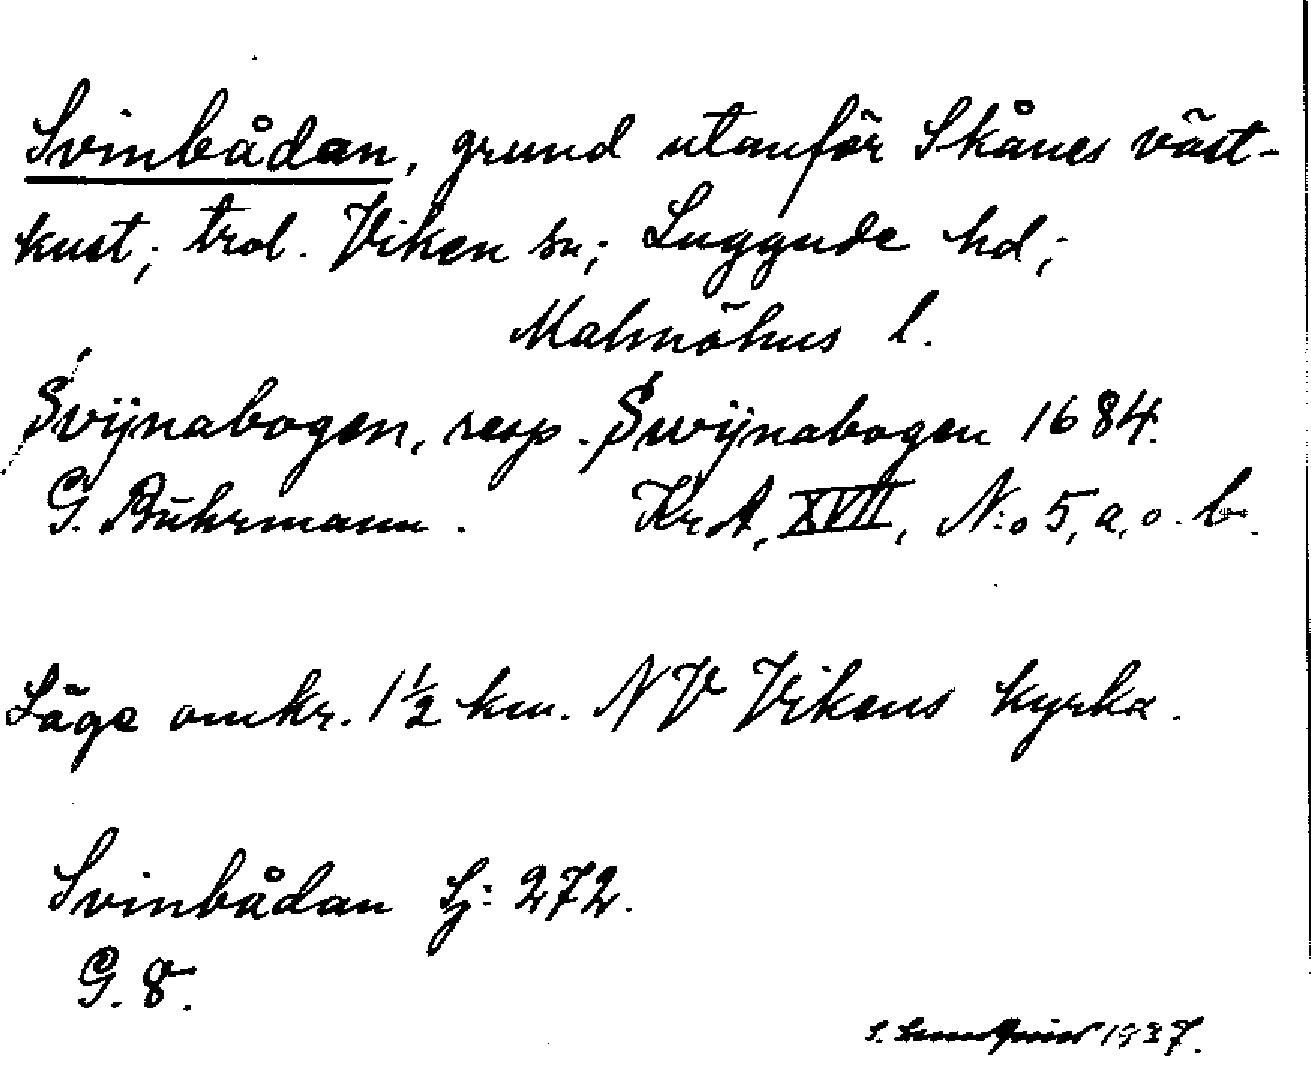 Svinbådan, grund utanför Skånes väst-
kust; trol. Viken sn; Luggude hd;
Malmöhus l.
Svijnabogen, resp. Swijnabogen 1684.
G. Buhrmann. KrA, XVII, N:o 5, a, o. b.
Läge omkr. 1½ km. NV Vikens kyrka.
Svinbådan Sj: 272.
G. 8.
S. 1937.